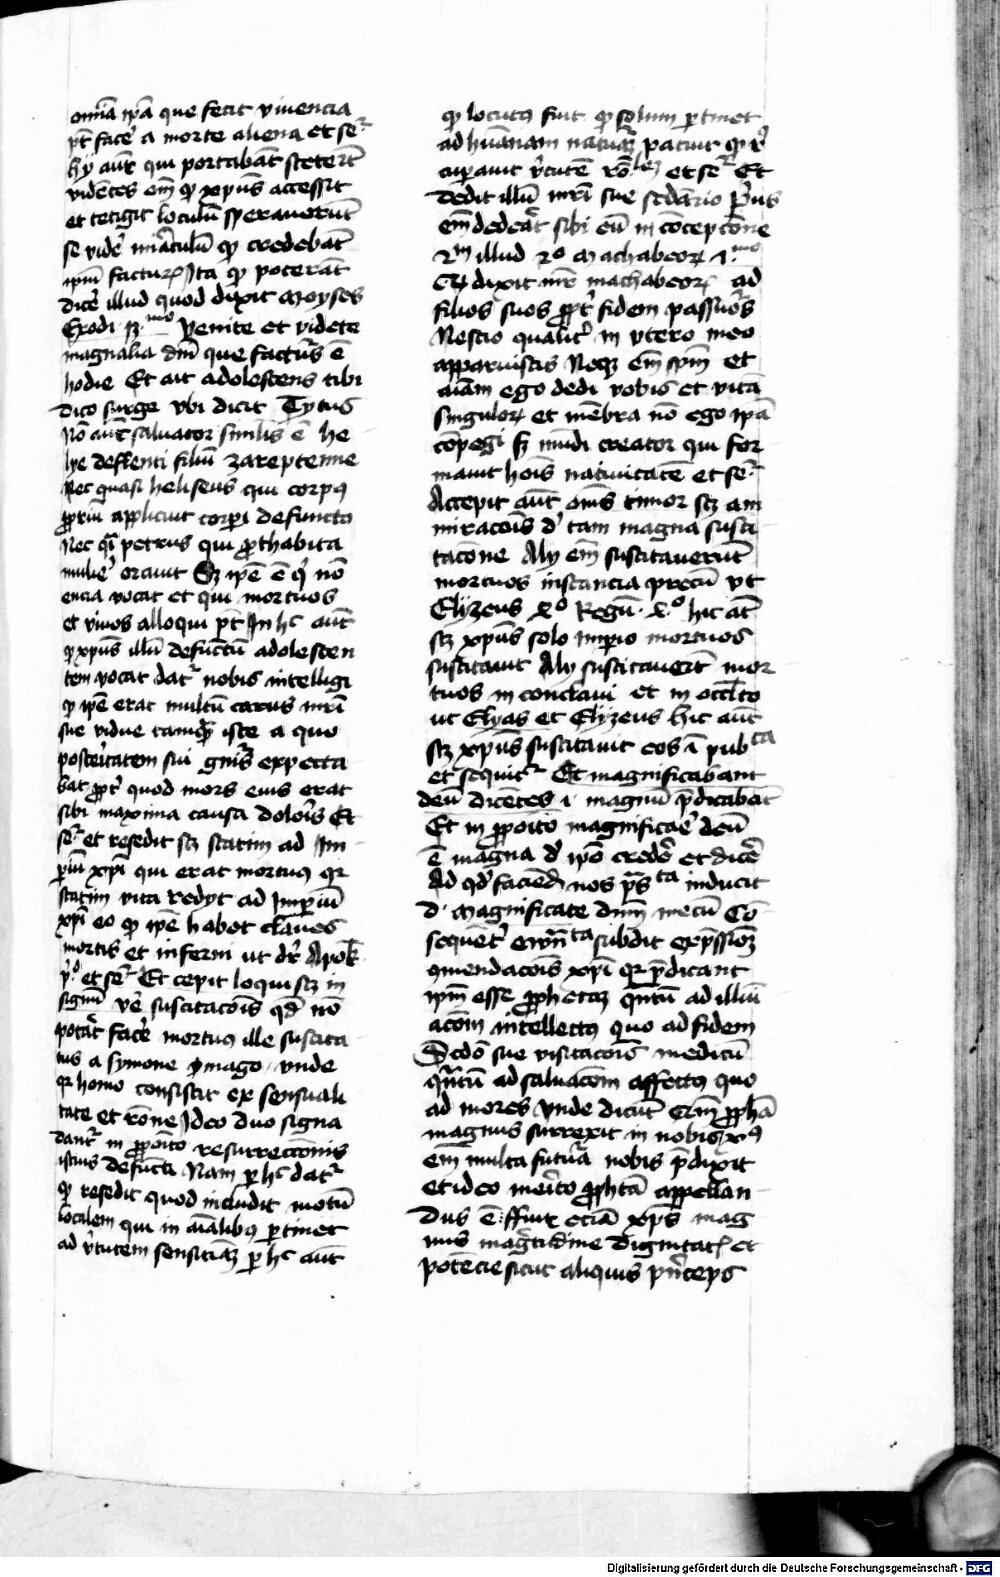 om̄ia ip̄a que fecit viventia
pt̄ facē a morte aliena et se͛
hy aut̄ qui portabāt stetert̄
vidētes em̄ qꝫ xp̄us accessit
et tetigit loculū speraverūt
se vidē mirāculū qꝫ credebāt
ip̄m facturꝝ Ita qꝫ poterāt
dicē illud quod dixit moyses
Exodi mo Venite et videte
magnalia dn̄i que factur̄s ē
hodie Et ait adolescens tibi
dico surge ubi dicit Tytus
Nō aut̄ salvator similis ē he
lye deflenti filiū zareptenne
Nec quasi heliseus qui corpꝰ
ꝓpriū applicuit corp̄i defuncto
Nec q̄i petrus qui ꝓ thabita
muliē oravit Sꝫ ip̄e ē q̄ nō
encia vocat et qui mortuos
et vivos alloqui pt̄ In hᶜ aut̄
qꝫ xp̄us illū defūctū adolescen
tem vocat dat̄ nobis intelligi
qꝫ ip̄e erat multū carus mr̄i
sue vidue tamꝗ̄ iste a quo
posteritatem sui gn̄is expecta
bat ꝓpt̄ quod mors eius erat
sibi maxima causa doloris Et
se͛ et resedit sꝫ statim ad Im
periū xp̄i qui erat mortuꝰ qꝛ
statim vita redyt ad Imperiū
xp̄i eo qꝫ ip̄e habet claves
mortis et inferni ut dr̄ Apok
p̄o et se͛ Et cepit loqui sꝫ in
signū vē suscitacōis qd̄ nō
potāt facē mortuꝰ ille suscita
tus a symone mago vnde
qꝛ homo consistit ex sensuali
tate et rōne Ideo duo signa
dant̄ in ꝓpoīto resurreccōnis
istius defūcti Nam per hᶜ dat̄
qꝫ resedit quod includit motū
localem qui in aīalibꝰ pertinet
ad v̄tutem sensitiāꝫ per hᶜ aut̄
qꝫ locutꝰ fuit qꝫ solum pertinet
ad huānam naturāꝫ patuit qꝫ r̄
cuperauit v̄tutē rō et se͛ Et
dedit illū mr̄i sue
em̄ dedeāt sibi eū in cōcepcōne
illud 2º Machabeoꝝ
dixit mr̄ machabeoꝝ ad
filios suos ꝓpt̄ fidem passuros
Nescio qualit̄ in vtero meo
apparuistis Neqꝫ em̄ sp̄m et
aīam ego dedi vobis et vitā
singuloꝝ et mēbra nō ego ip̄a
cōpegi sꝫ mūdi creator qui for
mauit hoīs nativitatē et se͛
Accepit aut̄ om̄s timor sꝫ am
miracōis d̄ tam magna susci
tacōne Aly em̄ suscitaverūt
mortuos instancia precū vt
Elyzeus Regū hic at̄
sꝫ xp̄us solo Imperio mortuos
suscitavit Aly suscitauert̄ mor
tuos in conclavi et in occl̄to
ut Elyas et Elyzeus hic aut̄
sꝫ xp̄us suscitavit eos ī pubᵗᵃ
et sequit̄ Et magnificabant
deū dicētes i magnū p̄dicabāt
Et in ꝓpoīto magnificāe deū
ē magna d̄ ip̄o credē et dicē
Ad qd̄ faciendꝫ nos p̄sᵗᵃ inducit
d. Magnificate dn̄m mecū Cō
sequēt̄ subdit exp̄ssionꝫ
ꝯmendacōis xp̄i qꝛ p̄dicant
ip̄m esse ꝓphetaꝫ qn̄tū ad illiū
acōm intellectꝰ quo ad fidem
Scd̄o sue visitacōis medicū
qn̄tū ad salvacōm affectꝰ quo
ad mores Vnde dicūt Qm̄ ꝓphā
magnus surrexit in nobis xꝰ
em̄ multa futūa nobis p̄dixit
et ideo merito ꝓphtā appellan
dus ē : ffuit eciā xp̄s mag
nus magnitudine dignitatis et
potēcie sicut aliquis prīceps
Digitalisierung gefördert durch die Deutsche Forschungsgemeinschaft - DFG